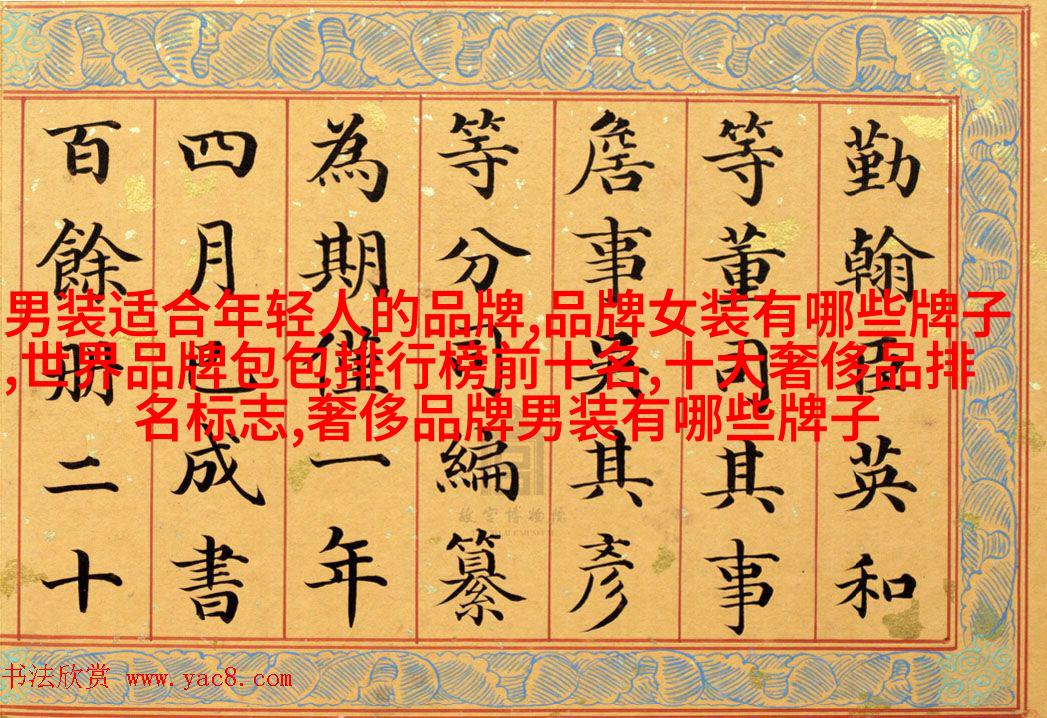 勤翰臣英和
等董司其事
詹事吳其彥
等分司編纂
為期僅一年
四月已成書
百餘冊二十
男装适合年轻人的品牌,品牌女装有哪些牌子
,世界品牌包包排行榜前十名,十大奢侈品排
名标志,奢侈品牌男装有哪些牌子
故宫博物院
书法欣赏 www.yac8.com